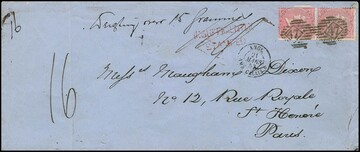 16
Weighing over 15 grammes
Messrs Maugham & Dixon
No. 12, Rue Royale
St Honoré
Paris.
16